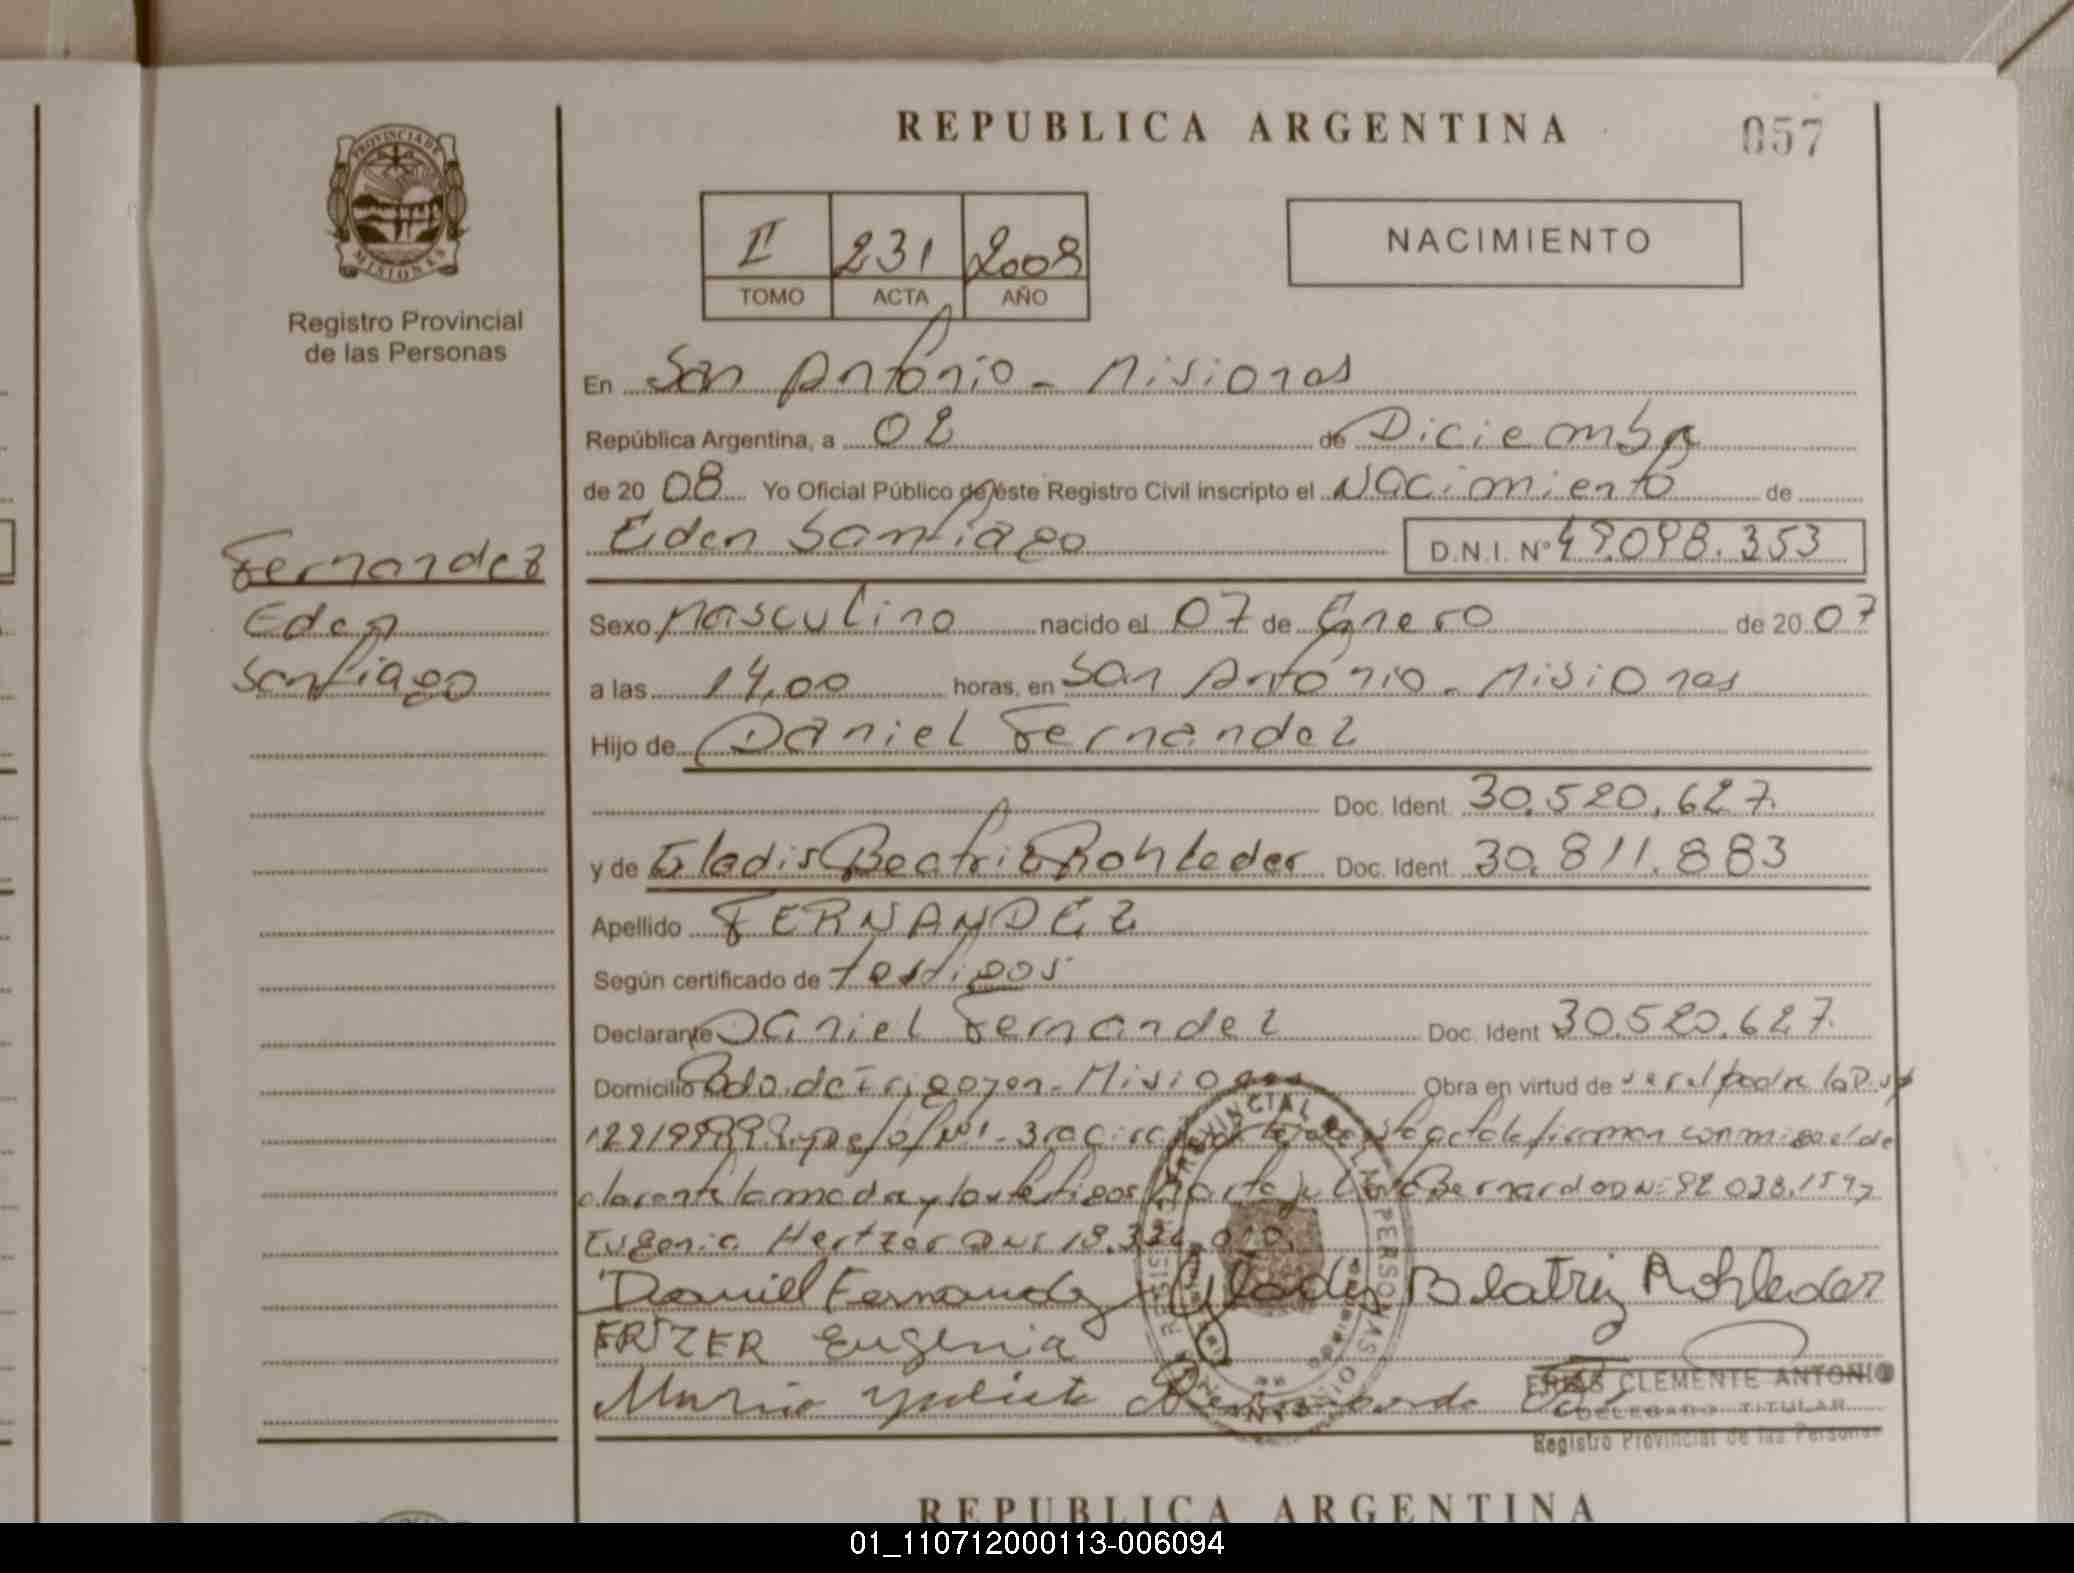 REPUBLICA ARGENTINA
057
PROVINCIA DE
MISIONES
Registro Provincial
de las Personas
II 231 2008
TOMO ACTA AÑO
NACIMIENTO
En San Antonio - Misiones
República Argentina, a 02 de Diciembre
de 2008 Yo Oficial Público de este Registro Civil inscripto el Nacimiento de
Eden Santiago D.N.I. Nº 49.098.353
Fernandez
Eden
Santiago
Sexo Masculino nacido el 07 de Enero de 2007
a las 14,00 horas, en San Antonio - Misiones
Hijo de Daniel Fernandez
Doc. Ident. 30.520.627
y de Gladis Beatriz Rohleder Doc. Ident. 30.811.883
Apellido FERNANDEZ
Según certificado de testigos
Declarante Daniel Fernandez Doc. Ident 30.520.627
Domicilio Bdo. de Irigoyen - Misiones Obra en virtud de ser el padre
firman conmigo el de
clarante la madre y los testigos Bernardo
Eugenia Hertzer DNI
Daniel Fernandez Gladis Beatriz Rohleder
Eugenia
Bernardo
CLEMENTE ANTONIO
DELEGADO TITULAR
Registro Provincial de las Personas
REPUBLICA ARGENTINA
01_110712000113-006094